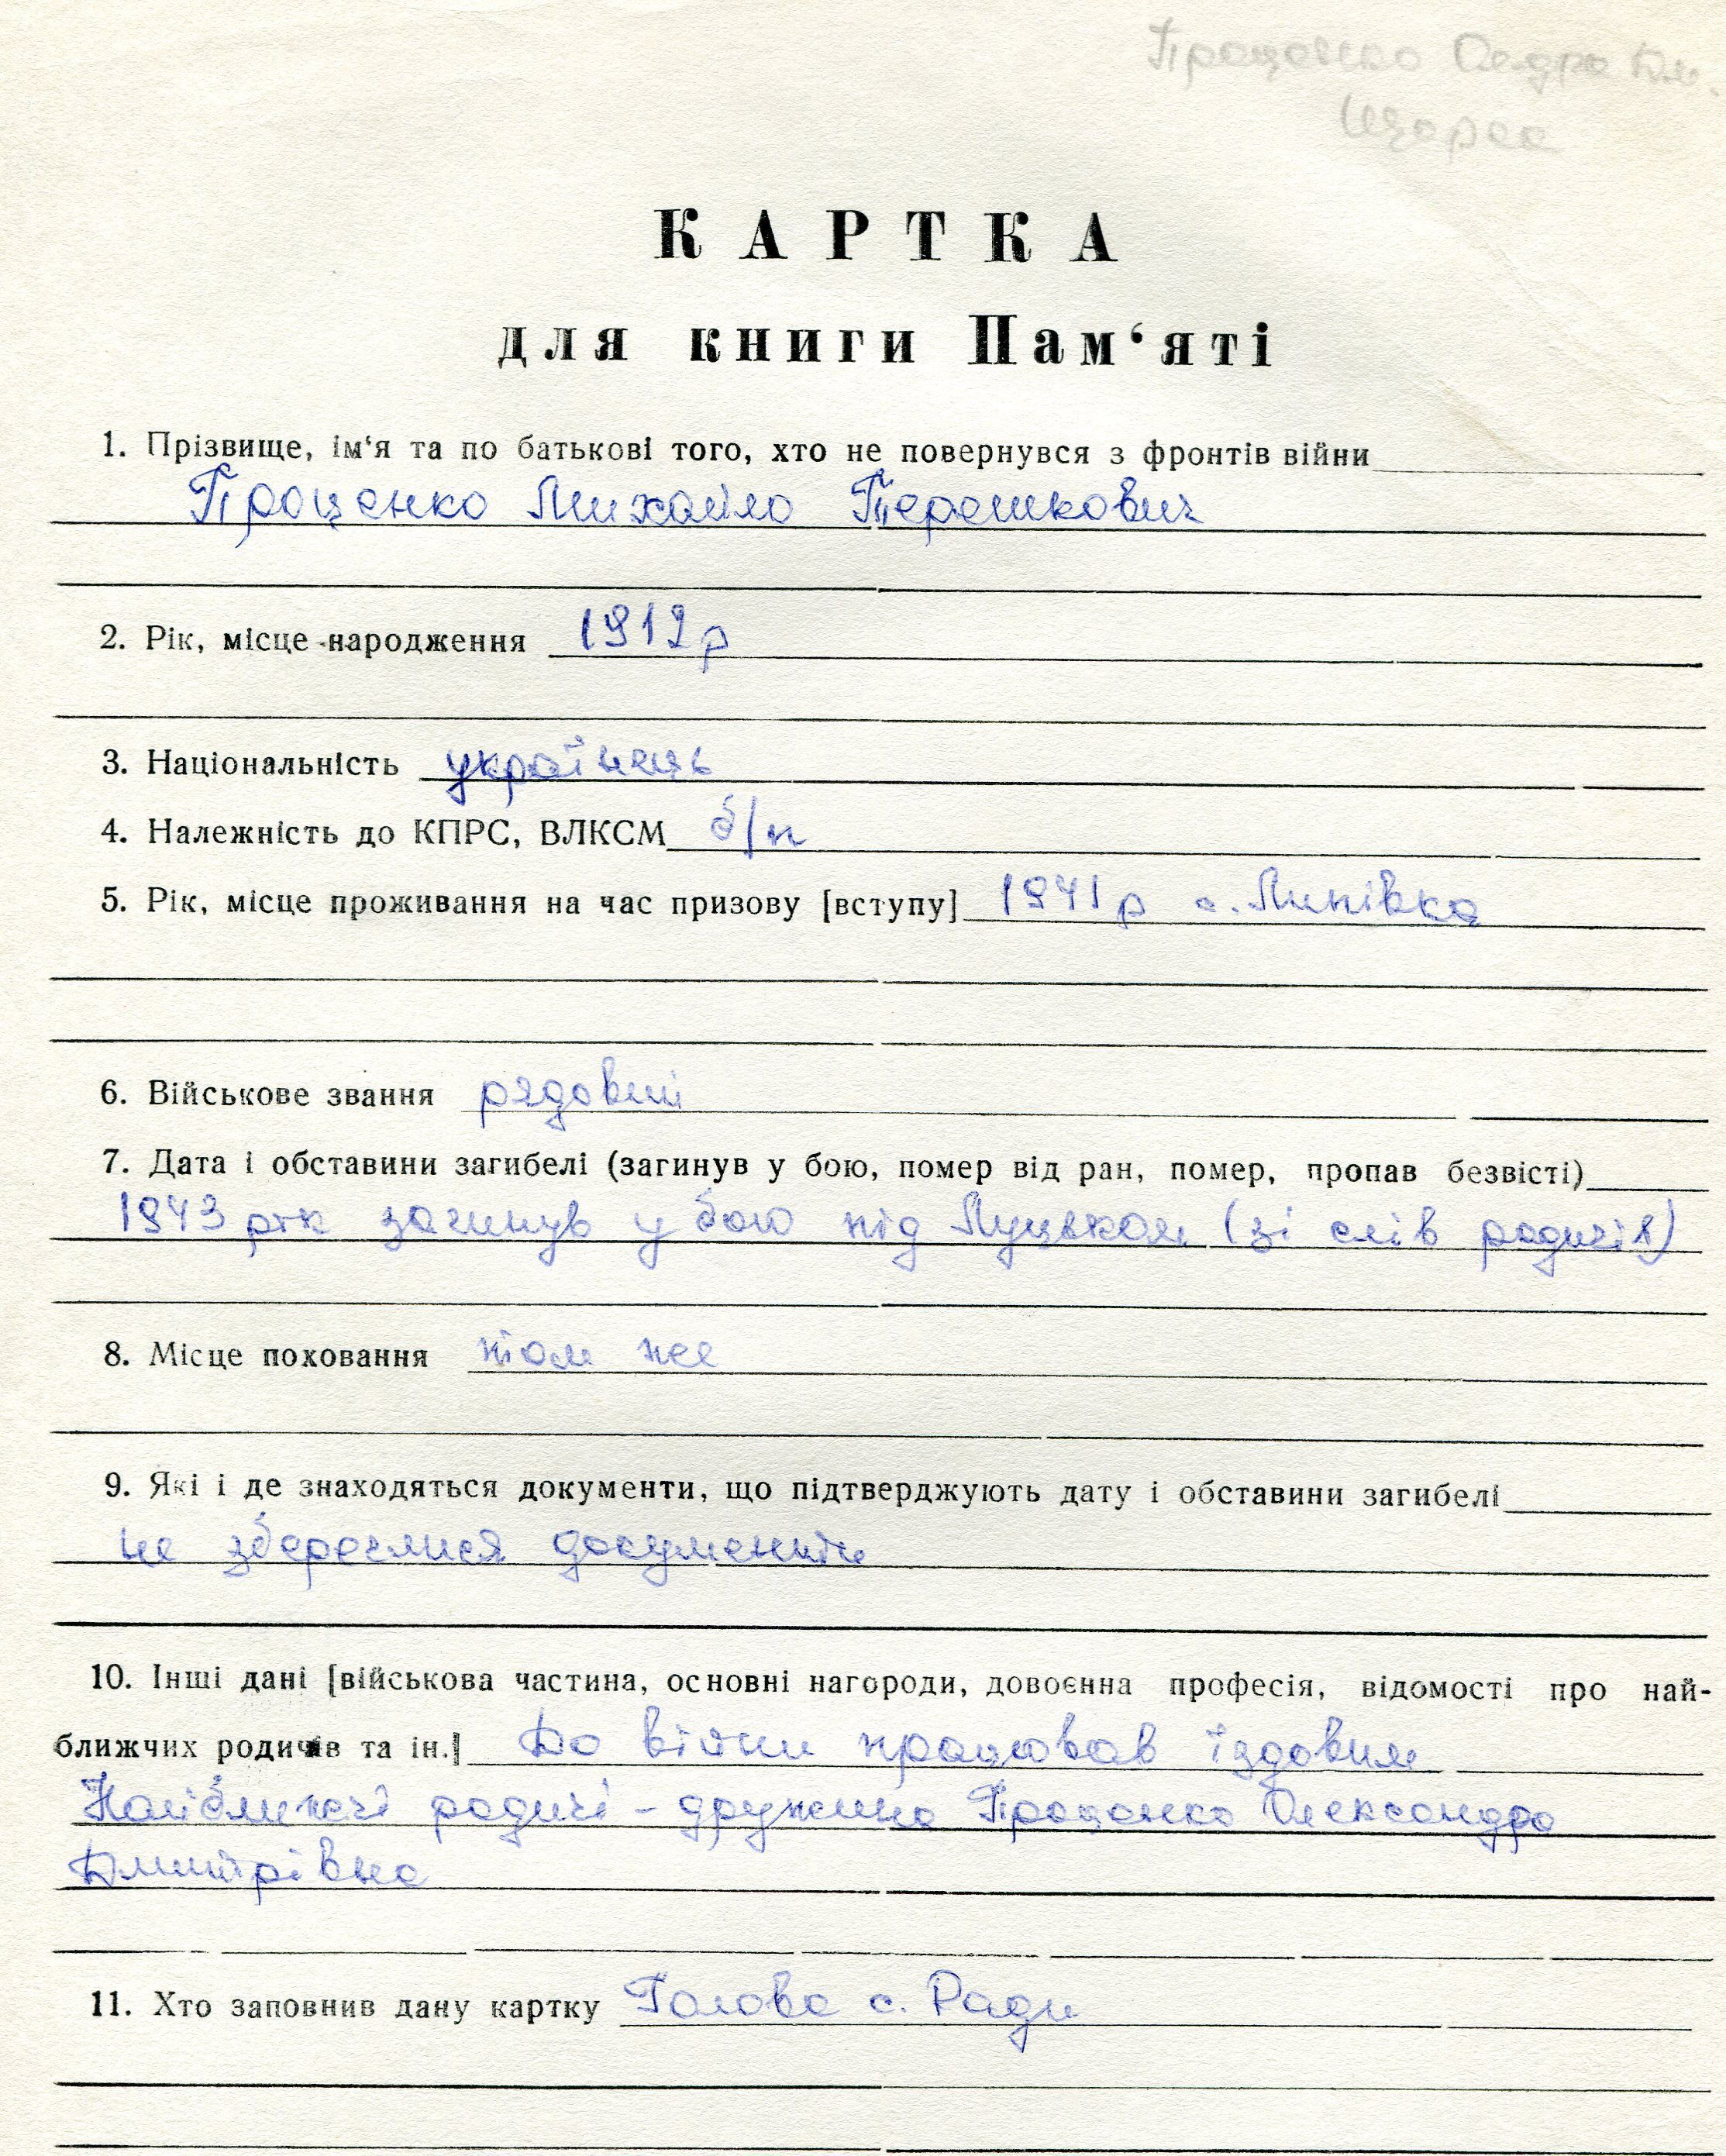 Проценко
Щорса
КАРТКА
для книги Пам‘яті
1. Прізвище, ім‘я та по батькові того, хто не повернувся з фронтів війни
Проценко Михайло Терешкович
2. Рік, місце народження 1912 р
3. Національність українець
4. Належність до КПРС, ВЛКСМ б/п
5. Рік, місце проживання на час призову [вступу] 1941 р с. Липівка
6. Військове звання рядовий
7. Дата і обставини загибелі (загинув у бою, помер від ран, помер, пропав безвісті)
1943 рік загинув у бою під Луцьком (зі слів родичів)
8. Місце поховання там же
9. Які і де знаходяться документи, що підтверджують дату і обставини загибелі
не збереглися документи
10. Інші дані [військова частина, основні нагороди, довоєнна професія, відомості про най-
ближчих родичів та ін.] До війни працював їздовим
Найближчі родичі - дружина Проценко Олександра
Дмитрівна
11. Хто заповнив дану картку Голова с. Ради